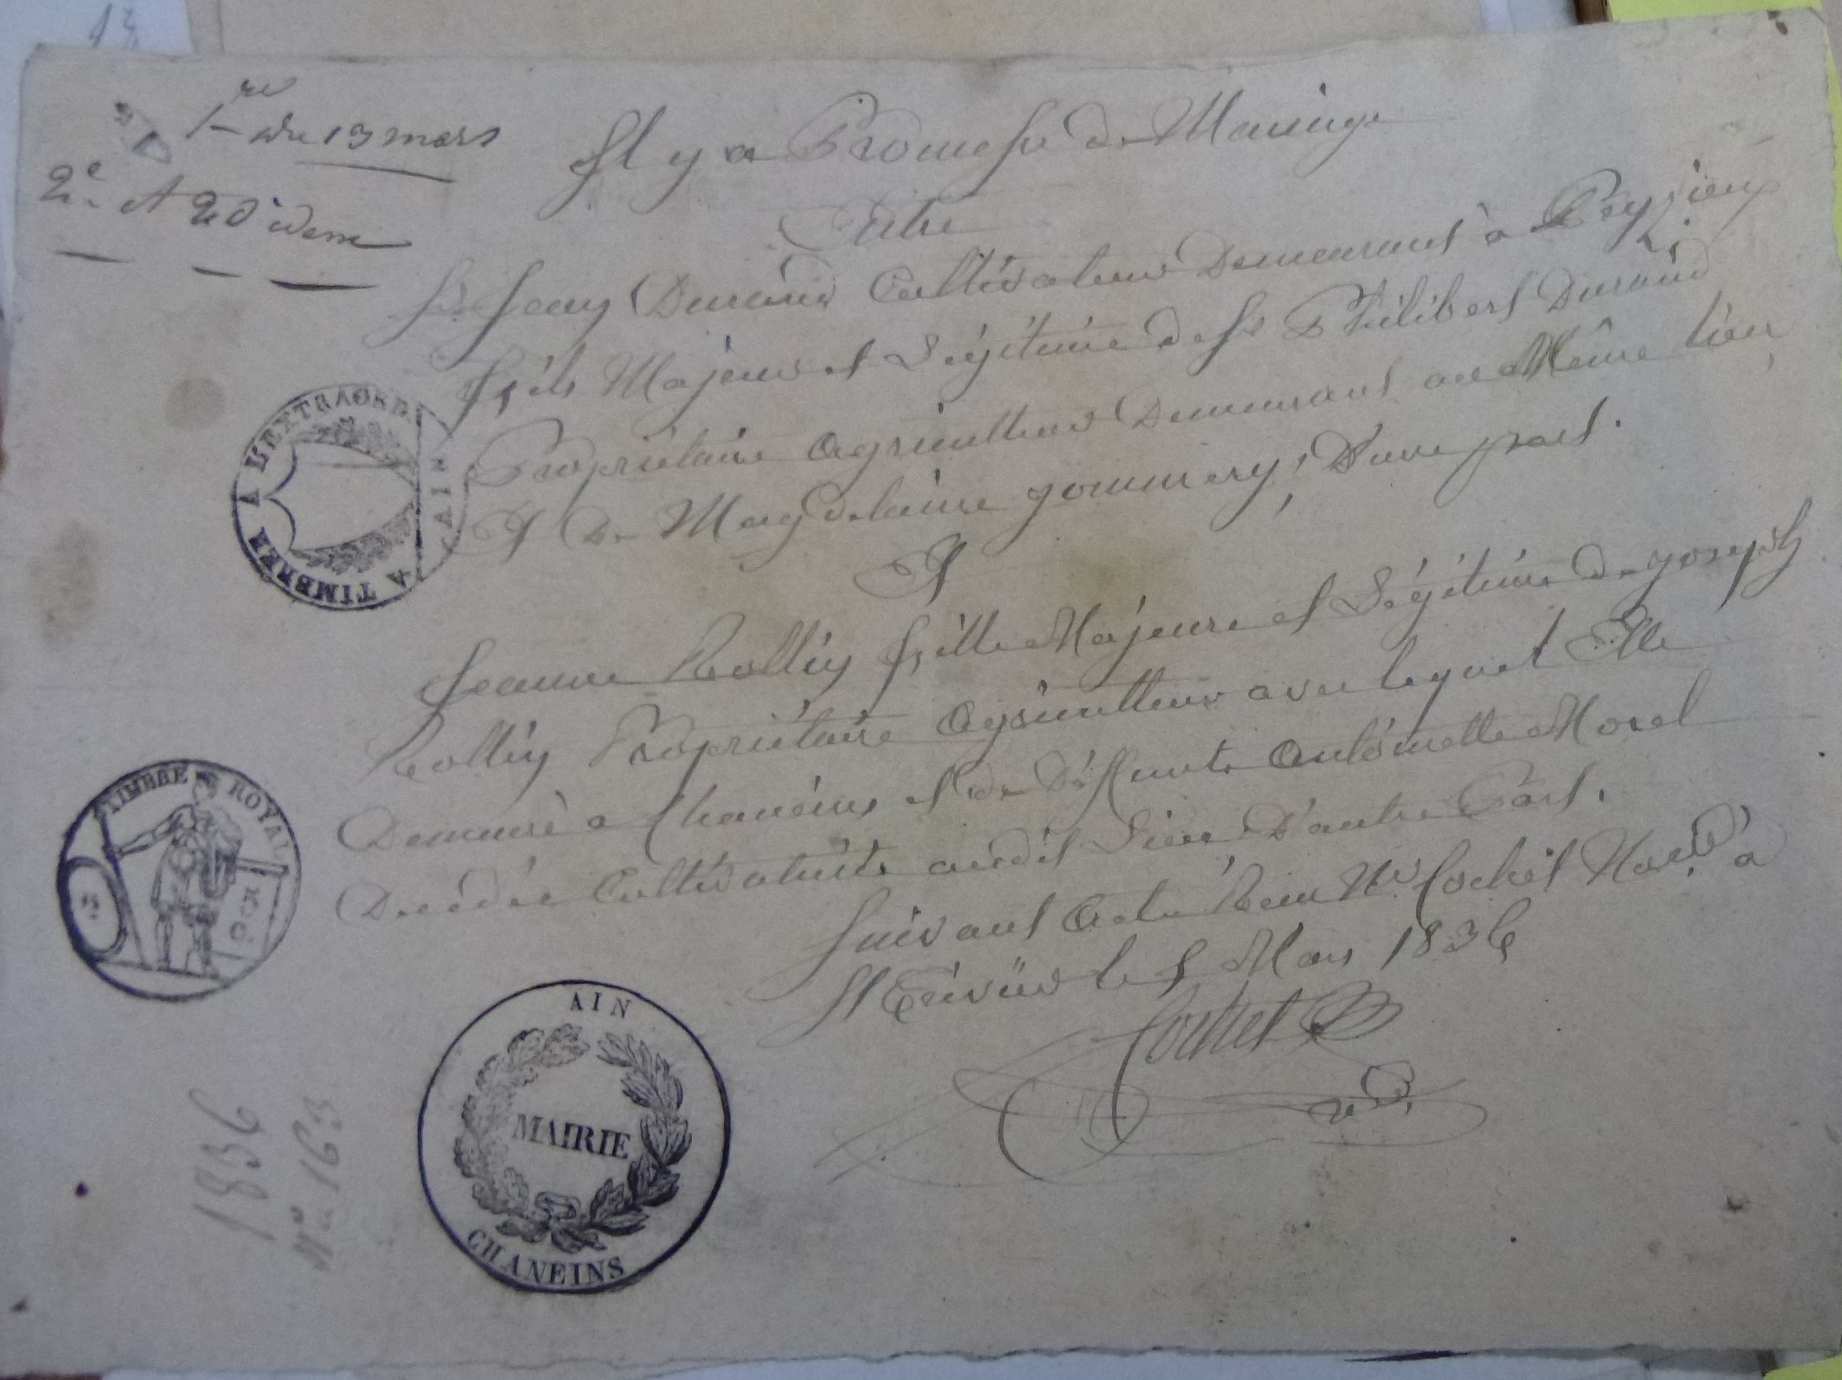 13
1re du 13 mars
2e et 20 idem
Il y a Promesse de Mariage
Entre
Sr Jean Durand Cultivateur Demeurant à Peyzieux
fils Majeur et Légitime de Sr Philibert Durand
Propriétaire Agriculteur Demeurant au Même lieu
Et De Magdelaine gommery, D'une part.
Et
Jeanne Rollin fille Majeure et Légitime de joseph
Rollin Propriétaire Agriculteur avec lequel Elle
Demeure à Chaneins et de Défunte Antoinette Morel
Décédée Cultivatrice audit Lieu D'autre Part.
Suivant Acte Reçu Me Cochet Nore à
St Trivier le 5 Mars 1836
Cochet
A TIMBRER A L'EXTRAORD
AIN
TIMBRE ROYAL
AIN
MAIRIE
CHANEINS
1836
No 163